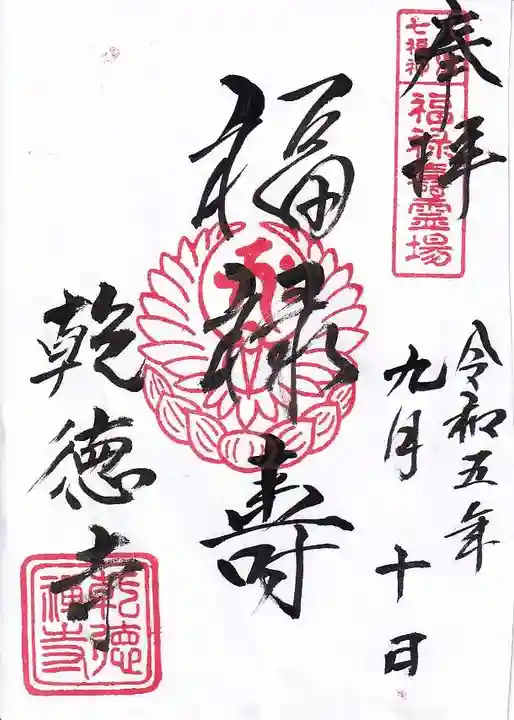 奉拝
七福神
福禄壽霊場
令和五年
九月十日
福禄寿
乾徳寺
乾徳
禅寺